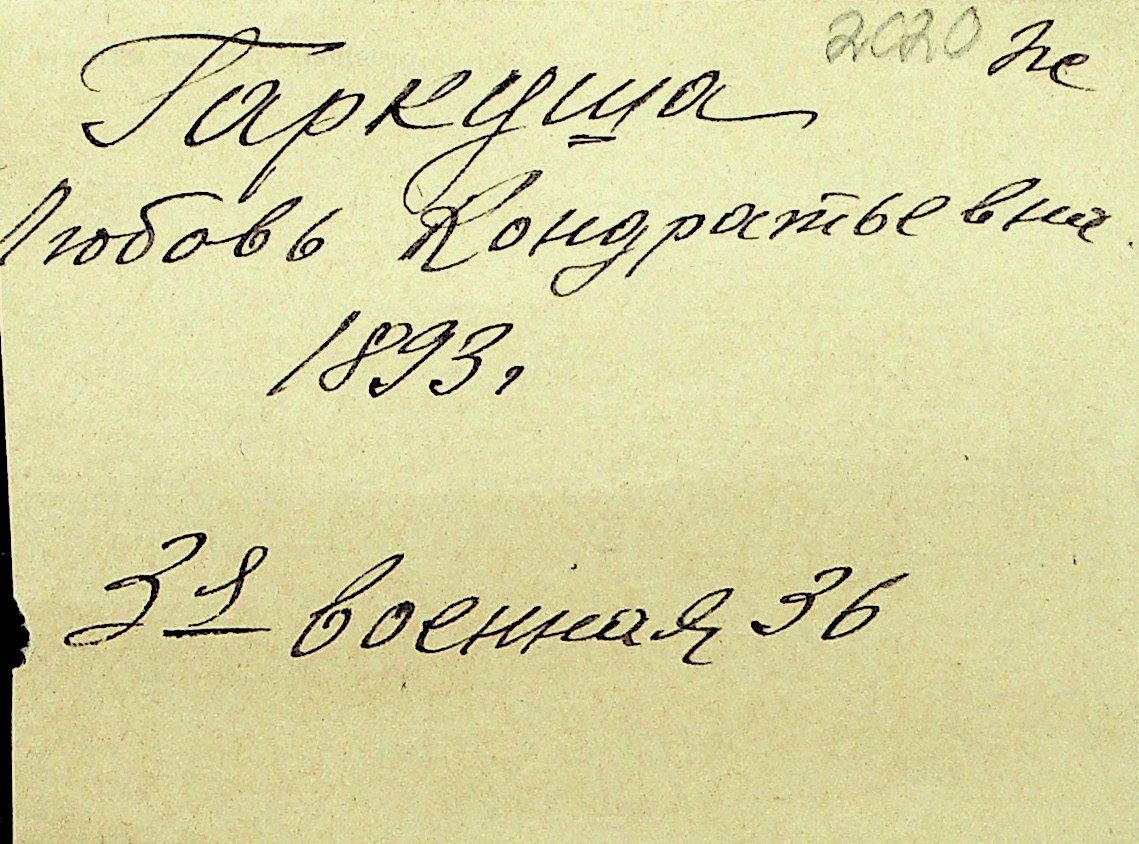 2020
Гаркуша
Любовь Кондратьевна
1893г
3я военная 36